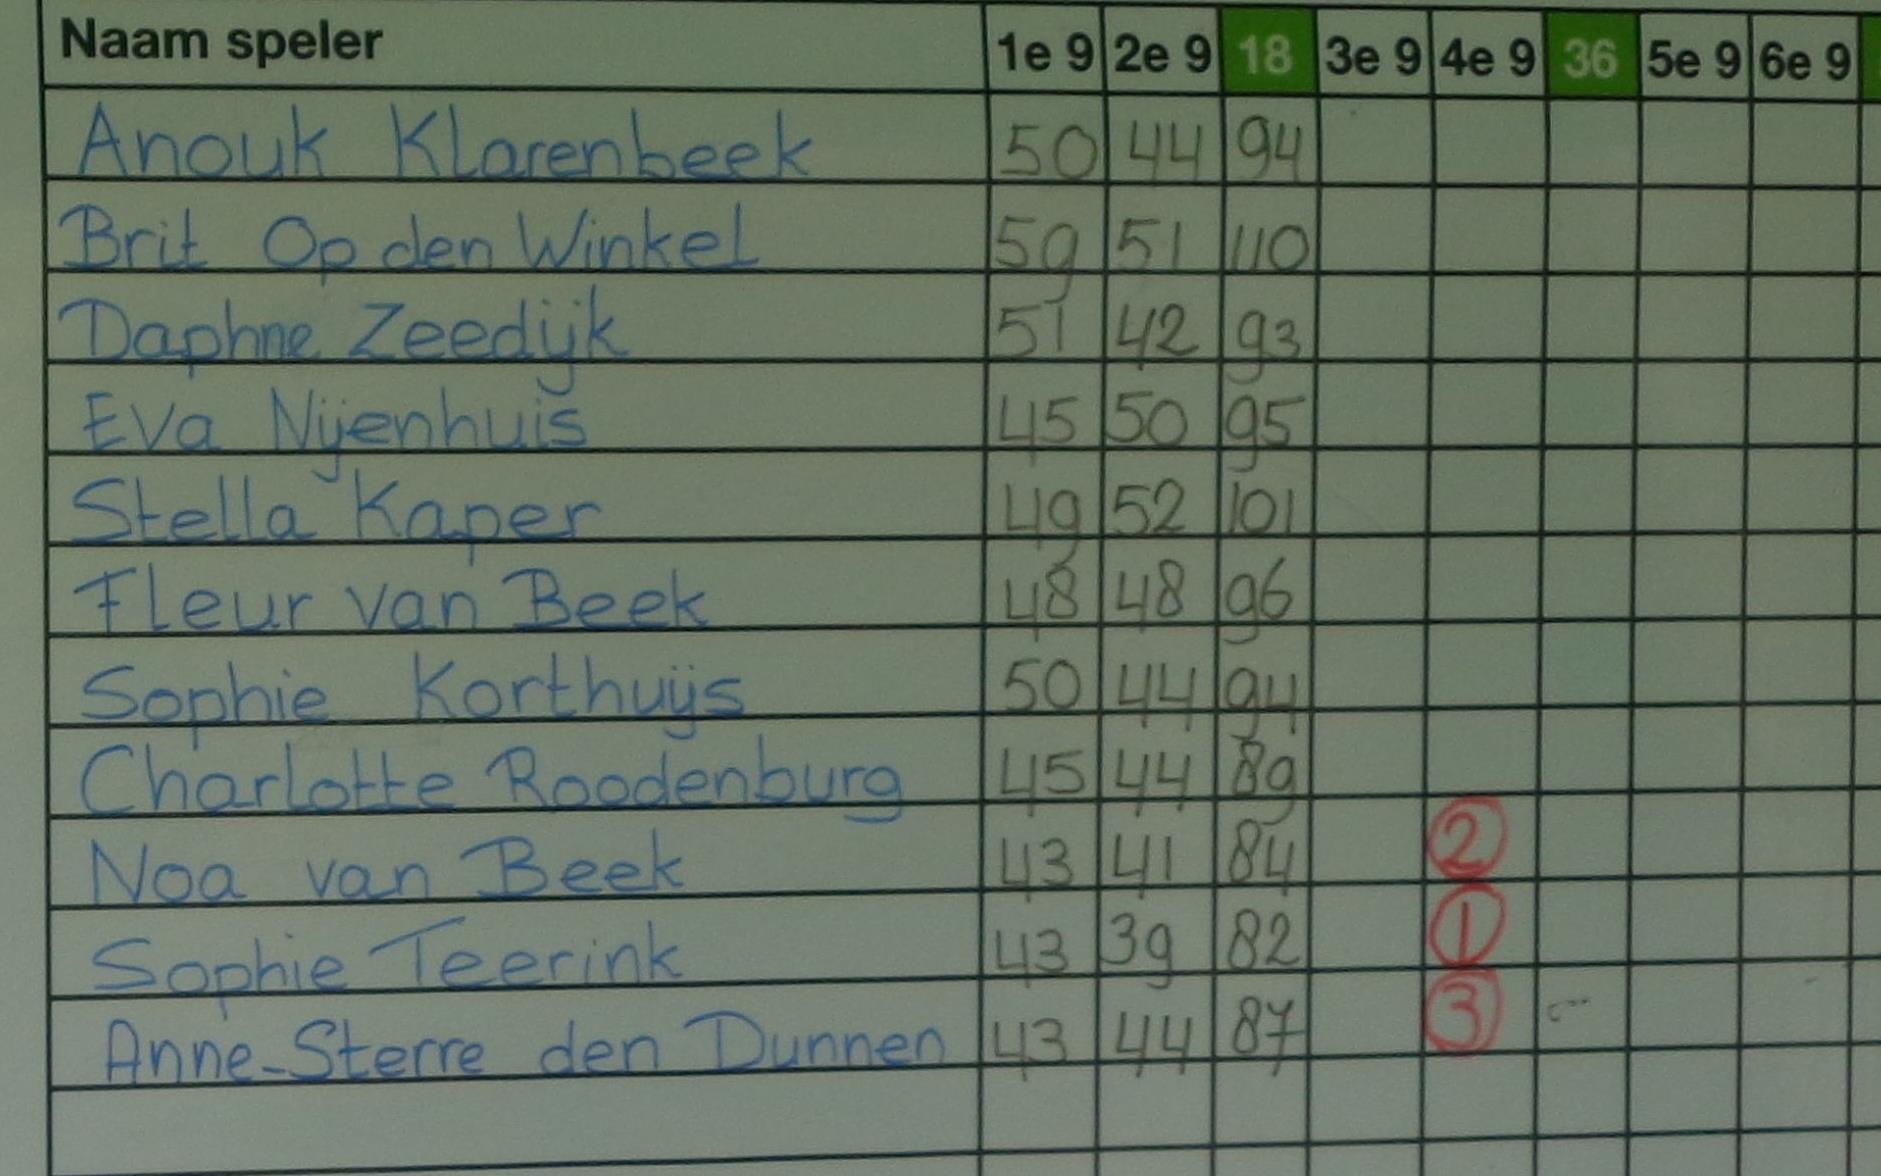 Naam speler 1e 9 2e 9 18 3e 9 4e 9 36 5e 9 6e 9
Anouk Klarenbeek 50 44 94
Brit Op den Winkel 59 51 110
Daphne Zeedijk 51 42 93
Eva Nijenhuis 45 50 95
Stella Kaper 49 52 101
Fleur van Beek 48 48 96
Sophie Korthuijs 50 44 94
Charlotte Roodenburg 45 44 89
Noa van Beek 43 41 84 2
Sophie Teerink 43 39 82 1
Anne-Sterre den Dunnen 43 44 87 3